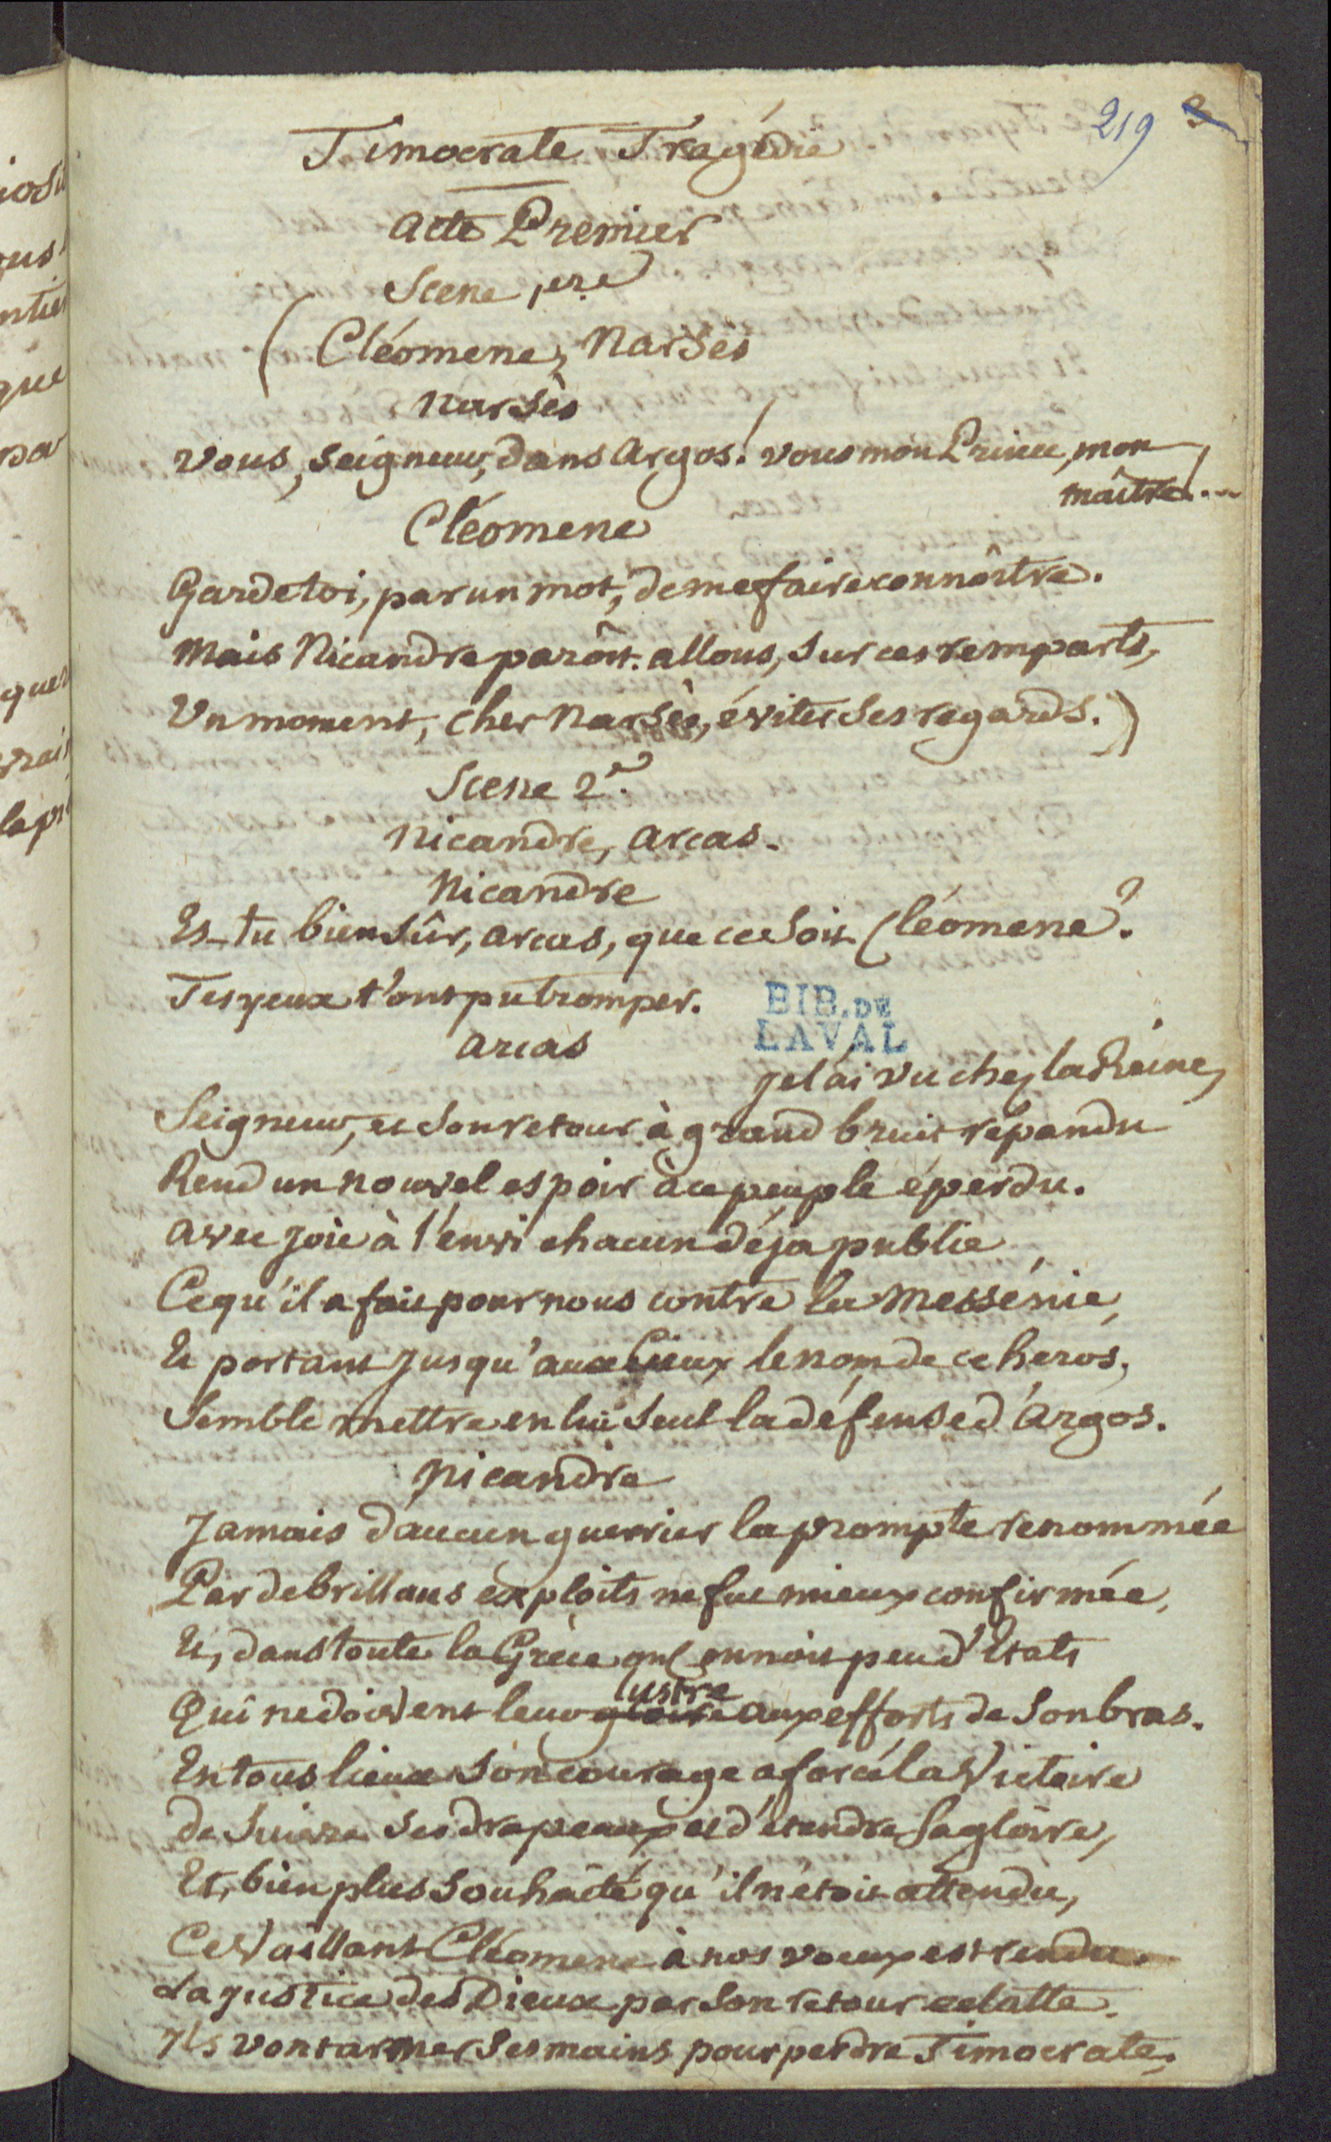 219 3
Timocrate Tragédie
acte Premier
Scene 1ere
(Cléomene, Narsès
Narsès
Vous, Seigneur, dans Argos! vous mon Prince, mon
maître!...
Cléomene
Garde toi, par un mot, de me faire connoître.
Mais Nicandre paroît. allons, sur ces remparts,
Un moment, cher Narsès, éviter ses regards.)
Scene 2e.
Nicandre, Arcas.
Nicandre
Es-tu bien sûr, arcas, que ce soit Cléomene?
Tes yeux t'ont pu tromper.
BIB. DE
LAVAL
Arcas
Je l'ai vu chez la Reine,
Seigneur, et son retour à grand bruit répandu
Rend un nouvel espoir à ce peuple éperdu.
Avec joie à l'envi chacun déja publie
Ce qu'il a fait pour nous contre la Messénie,
Et portant jusqu'aux Cieux le nom de ce heros,
Semble mettre en lui seul la défense d'Argos.
Nicandre
Jamais d'aucun guerrier la prompte renommée
Par de brillans exploits ne fut mieux confirmée,
Et, dans toute la Grèce, on connoit peu d'Etats
Qui ne doivent leur gloire lustre aux efforts de son bras.
En tous lieux son courage a forcé la Victoire
de suivre ses drapeaux et d'étendre sa gloire,
Et, bien plus souhaité qu'il n'étoit attendu,
Ce Vaillant Cléomene à nos voeux est rendu.
La justice des Dieux par son retour eclatte.
Ils vont armer ses mains pour perdre Timocrate,